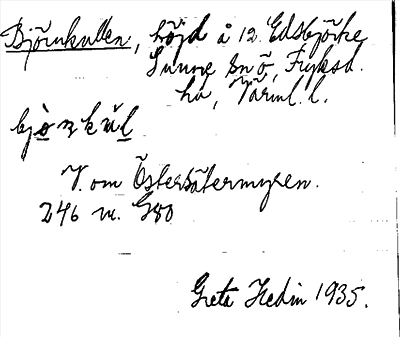 Björnkullen, höjd å 12 Edsbjörke
Sunne sn ö, Fryksd.
hd, Värml. l.
bjò̱rnkŭl
V. om Östersätermyren.
246 m. G80
Greta Hedin 1935.